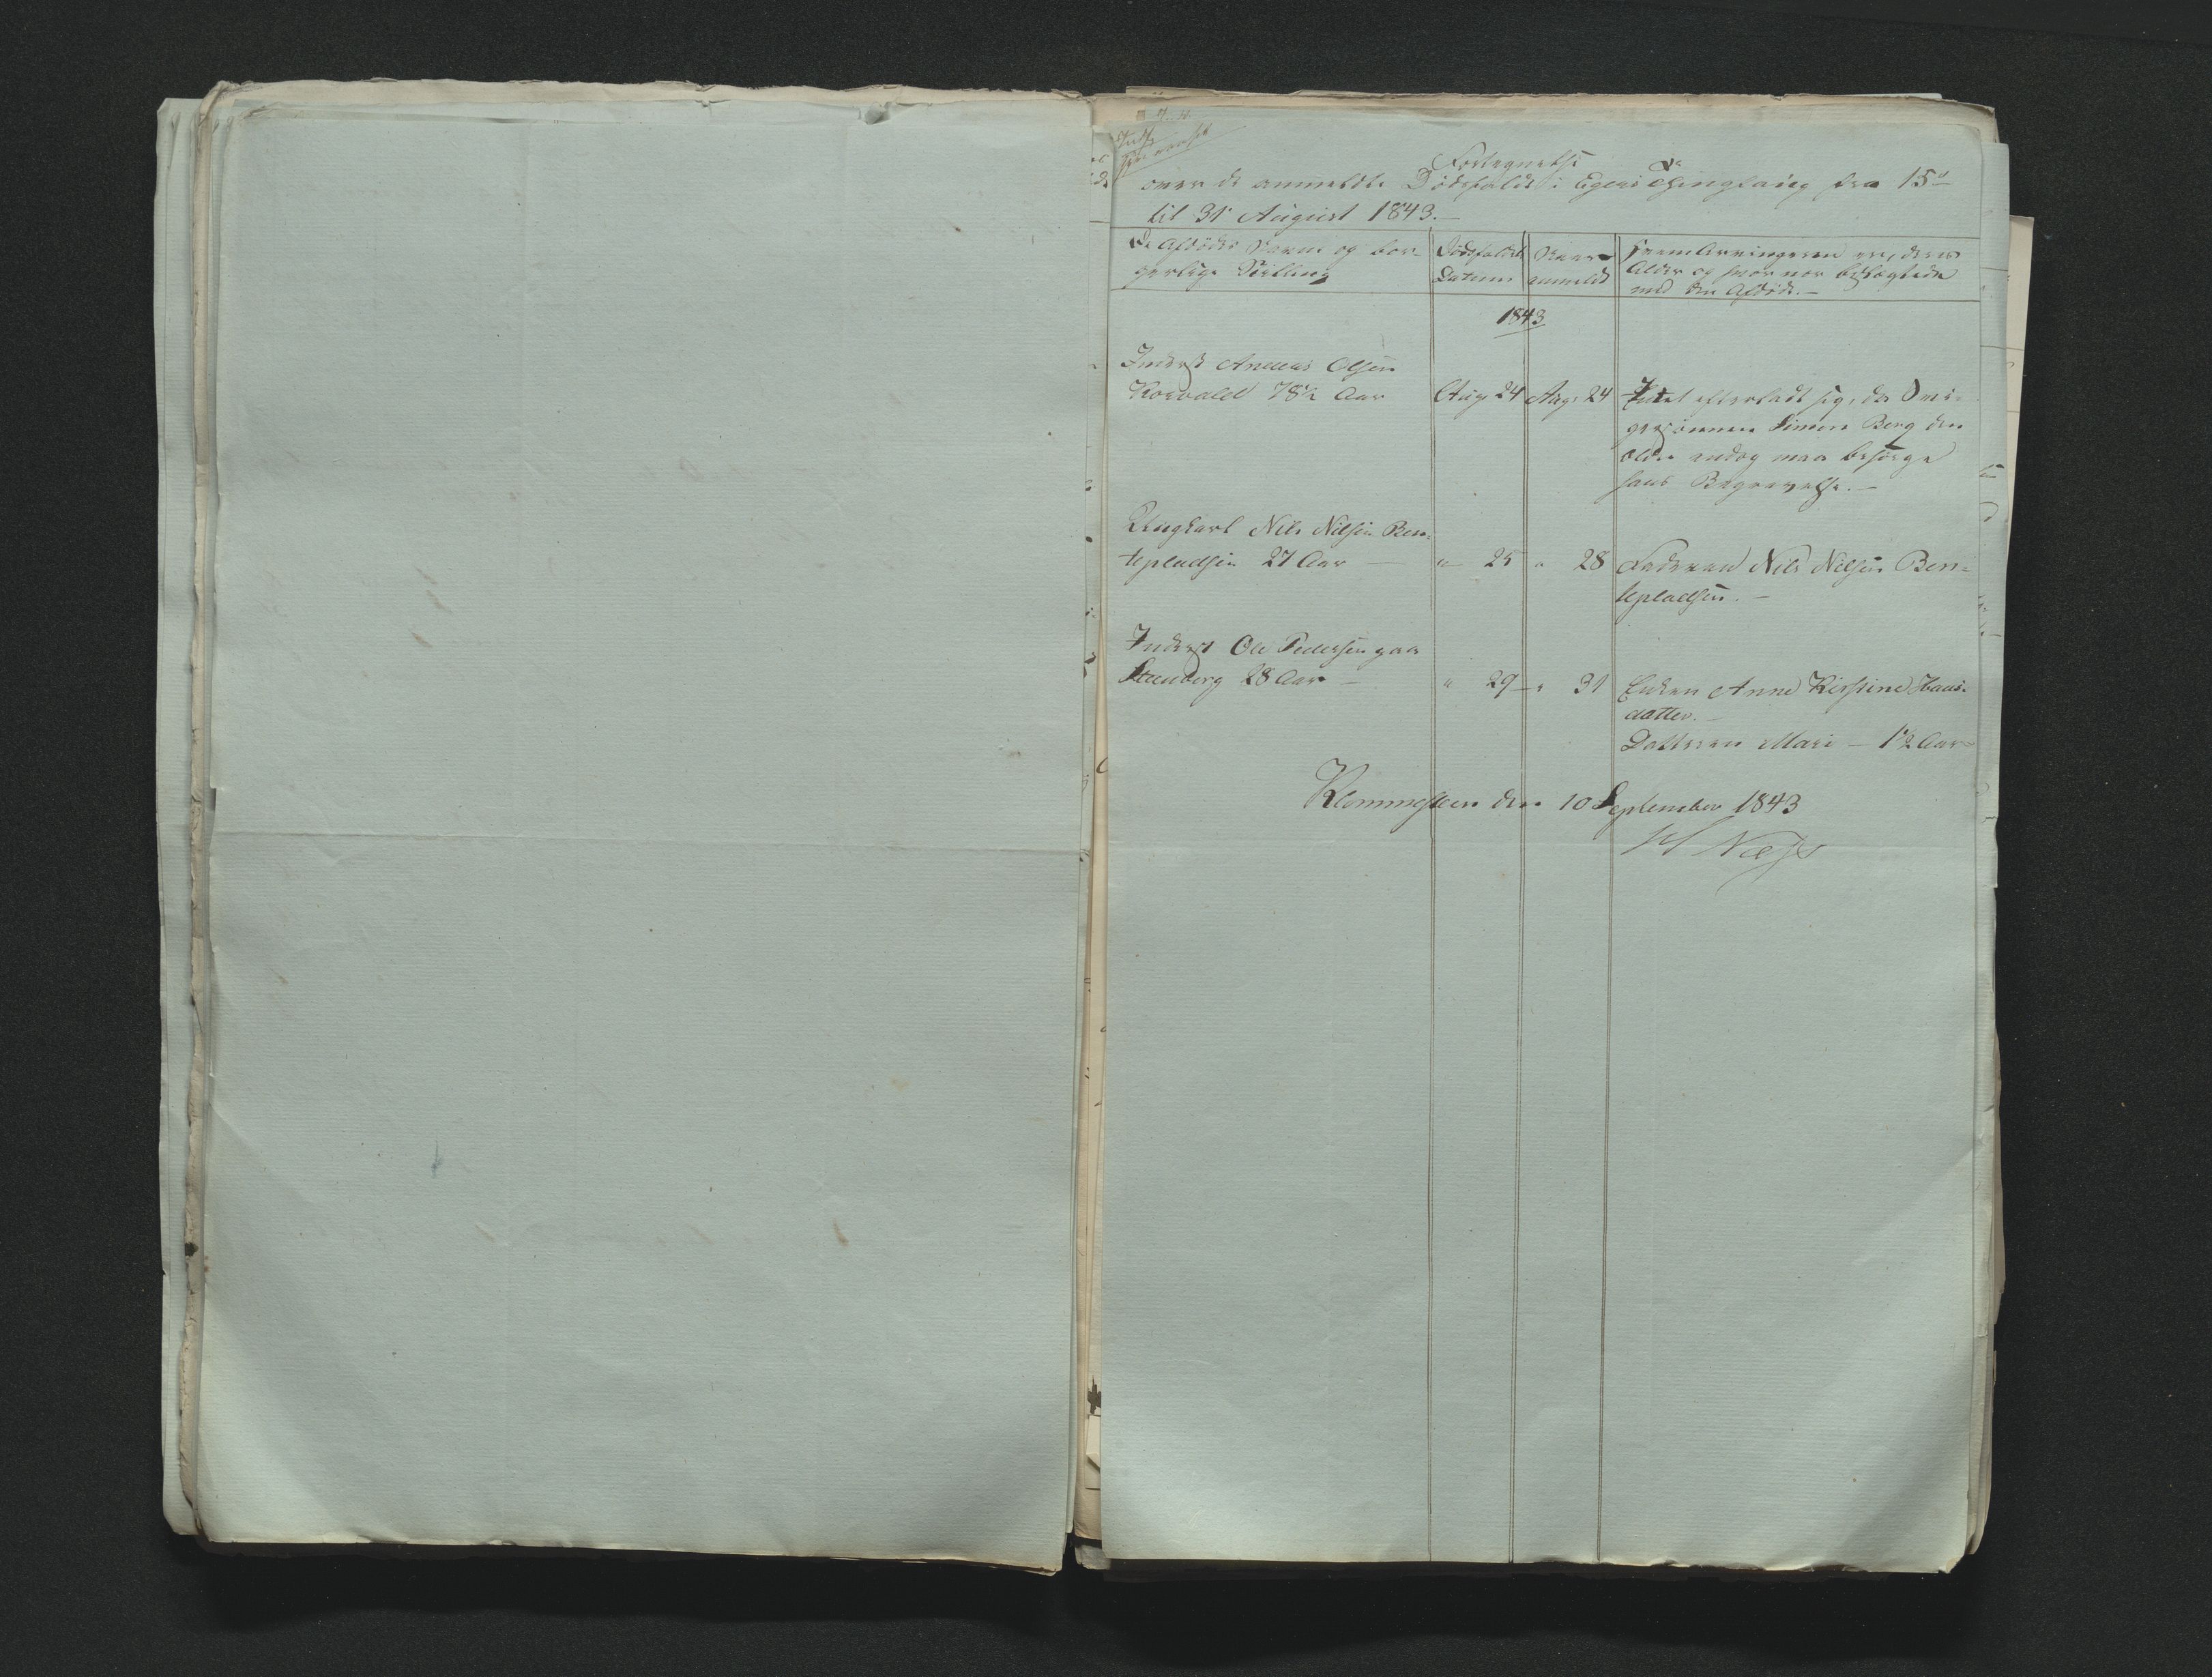 Fortegnelse
over de anmeldte Dødsfald i Egers Thinglaug fra 15de
til 31 August 1843.—
De Afdödes Navn og bor-
gerlige Stilling
Dødsfaldets
Datum
Naar
anmeldt
Hvem Arvingerne ere, deres
Alder og hvor nær beslægtede
med den Afdöde.—
1843
Inderst Andreas Olsen
Korvald 78½ Aar
Aug 24
Aug: 24
Intet efterladt sig, da
Simen Berg den
ældre endog maa besörge
hans Begravelse.—
Ungkarl Nils Nilsen Ben-
tepladsen 27 Aar —
" 25
" 28
Faderen Nils Nilsen Ben-
tepladsen.—
Inderst Ole Pedersen paa
Steenberg 28 Aar —
" 29 —
" 31
Enken Anne Kirstine Hans-
datter.—
Datteren Mari — 1½ Aar
Klommesteen den 10 September 1843
Næss